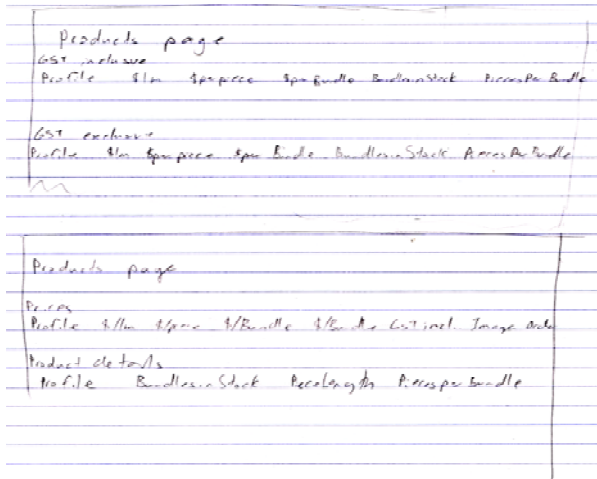 Products page
GST inclusive
Profile $/m $perpiece $perBundle BundlesinStock PiecesPerBundle
GST exclusive
Profile $/m $per piece $per Bundle BundlesinStock PiecesPerBundle
Products page
Prices
Profile $/lm $/piece $/Bundle $/Bundle Gst incl. Image Order
Product details
Profile BundlesinStock PieceLength Piecesperbundle